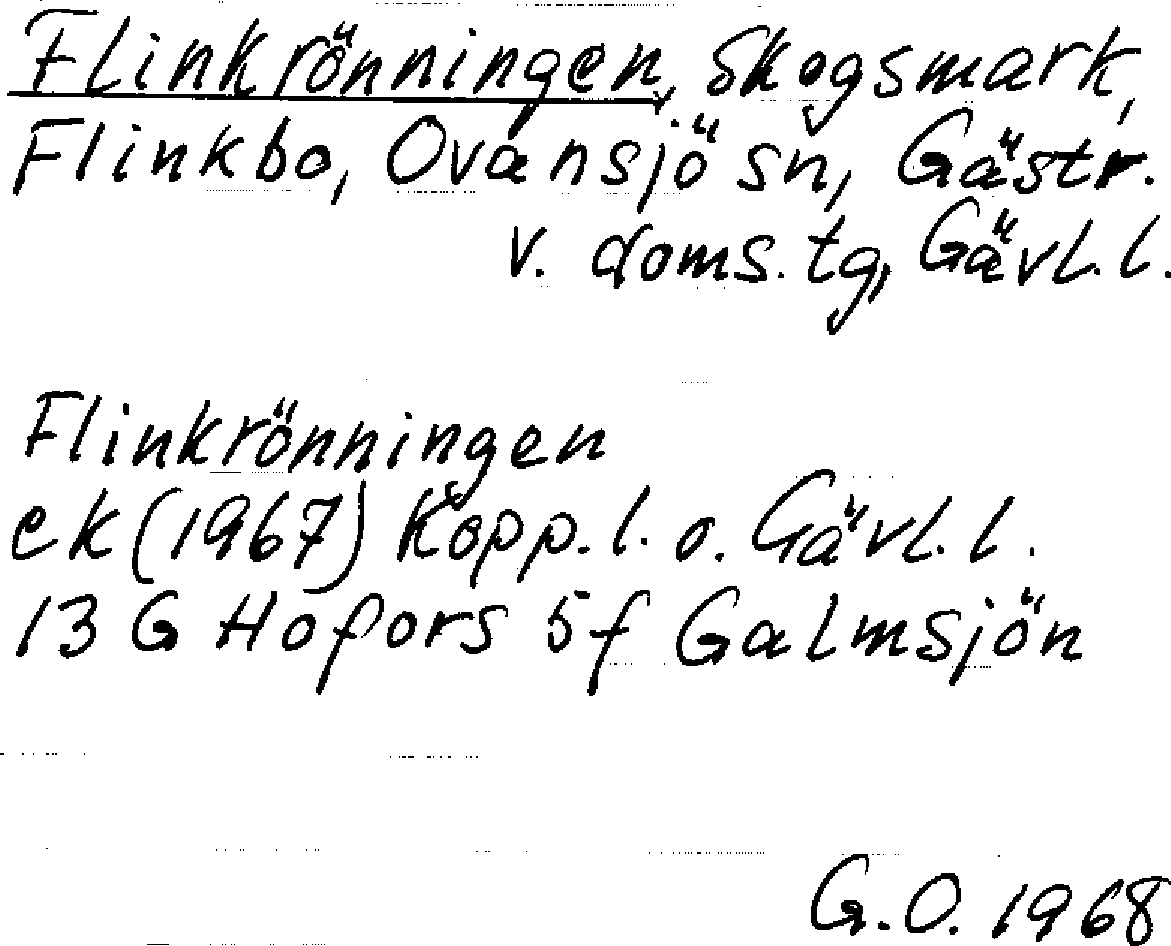 Flinkrönningen, skogsmark,
Flinkbo, Ovansjö sn, Gästr.
v. doms. tg, Gävl. l.
Flinkrönningen
ek (1967) Kopp. l. o. Gävl. l.
13 G Hofors 5f Galmsjön
G.O. 1968